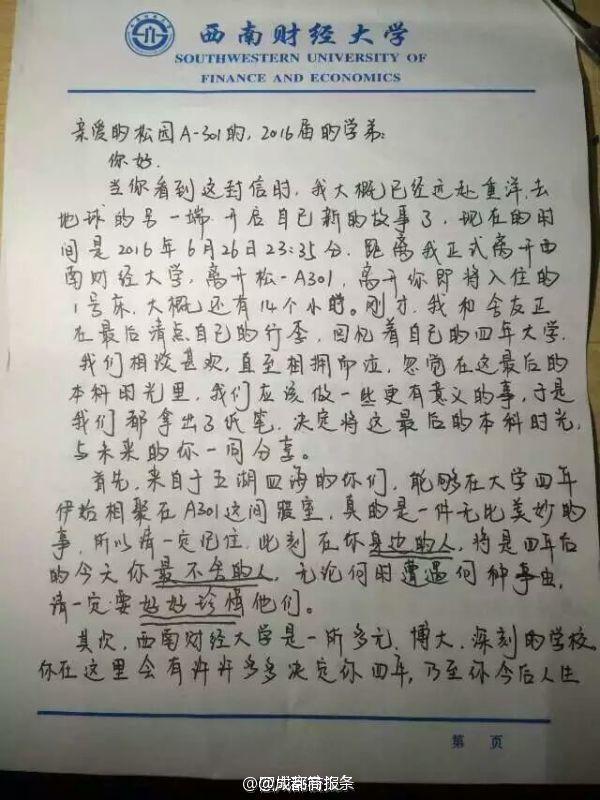 西南财经大学
SOUTHWESTERN UNIVERSITY OF
FINANCE AND ECONOMICS
亲爱的松园A-301的，2016届的学弟：
你好.
当你看到这封信时，我大概已经远赴重洋，去
地球的另一端 开启自己新的故事了，现在的时
间是2016年6月26日23:35分，距离我正式离开西
南财经大学，离开松-A301，离开你即将入住的
1号床，大概还有14个小时。刚才，我和舍友正
在最后清点自己的行李，回忆着自己的四年大学，
我们相谈甚欢，直至相拥而泣，忽觉在这最后的
本科时光里，我们应该做一些更有意义的事，于是
我们都拿出了纸笔，决定将这最后的本科时光，
与未来的你一同分享。
首先，来自于五湖四海的你们，能够在大学四年
伊始相聚在A301这间寝室，真的是一件无比美妙的
事，所以请一定记住，此刻在你身边的人，将是四年后
的今天你最不舍的人，无论何时遭遇何种事由，
请一定要好好珍惜他们。
其次，西南财经大学是一所多元、博大、深刻的学校，
你在这里会有许许多多决定你四年，乃至你今后人生
第 页
@成都商报条